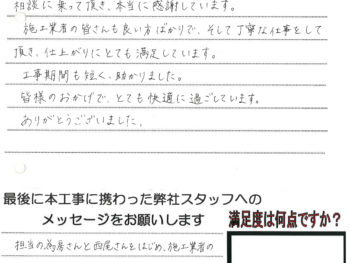 相談に乗って頂き、本当に感謝しています。
施工業者の皆さんも良い方ばかりで、そして丁寧な仕事をして
頂き、仕上がりにとても満足しています。
工事期間も短く、助かりました。
皆様のおかげで、とても快適に過ごしています。
ありがとうございました。
最後に本工事に携わった弊社スタッフへの
メッセージをお願いします
満足度は何点ですか?
担当の為房さんと西尾さんをはじめ、施工業者の